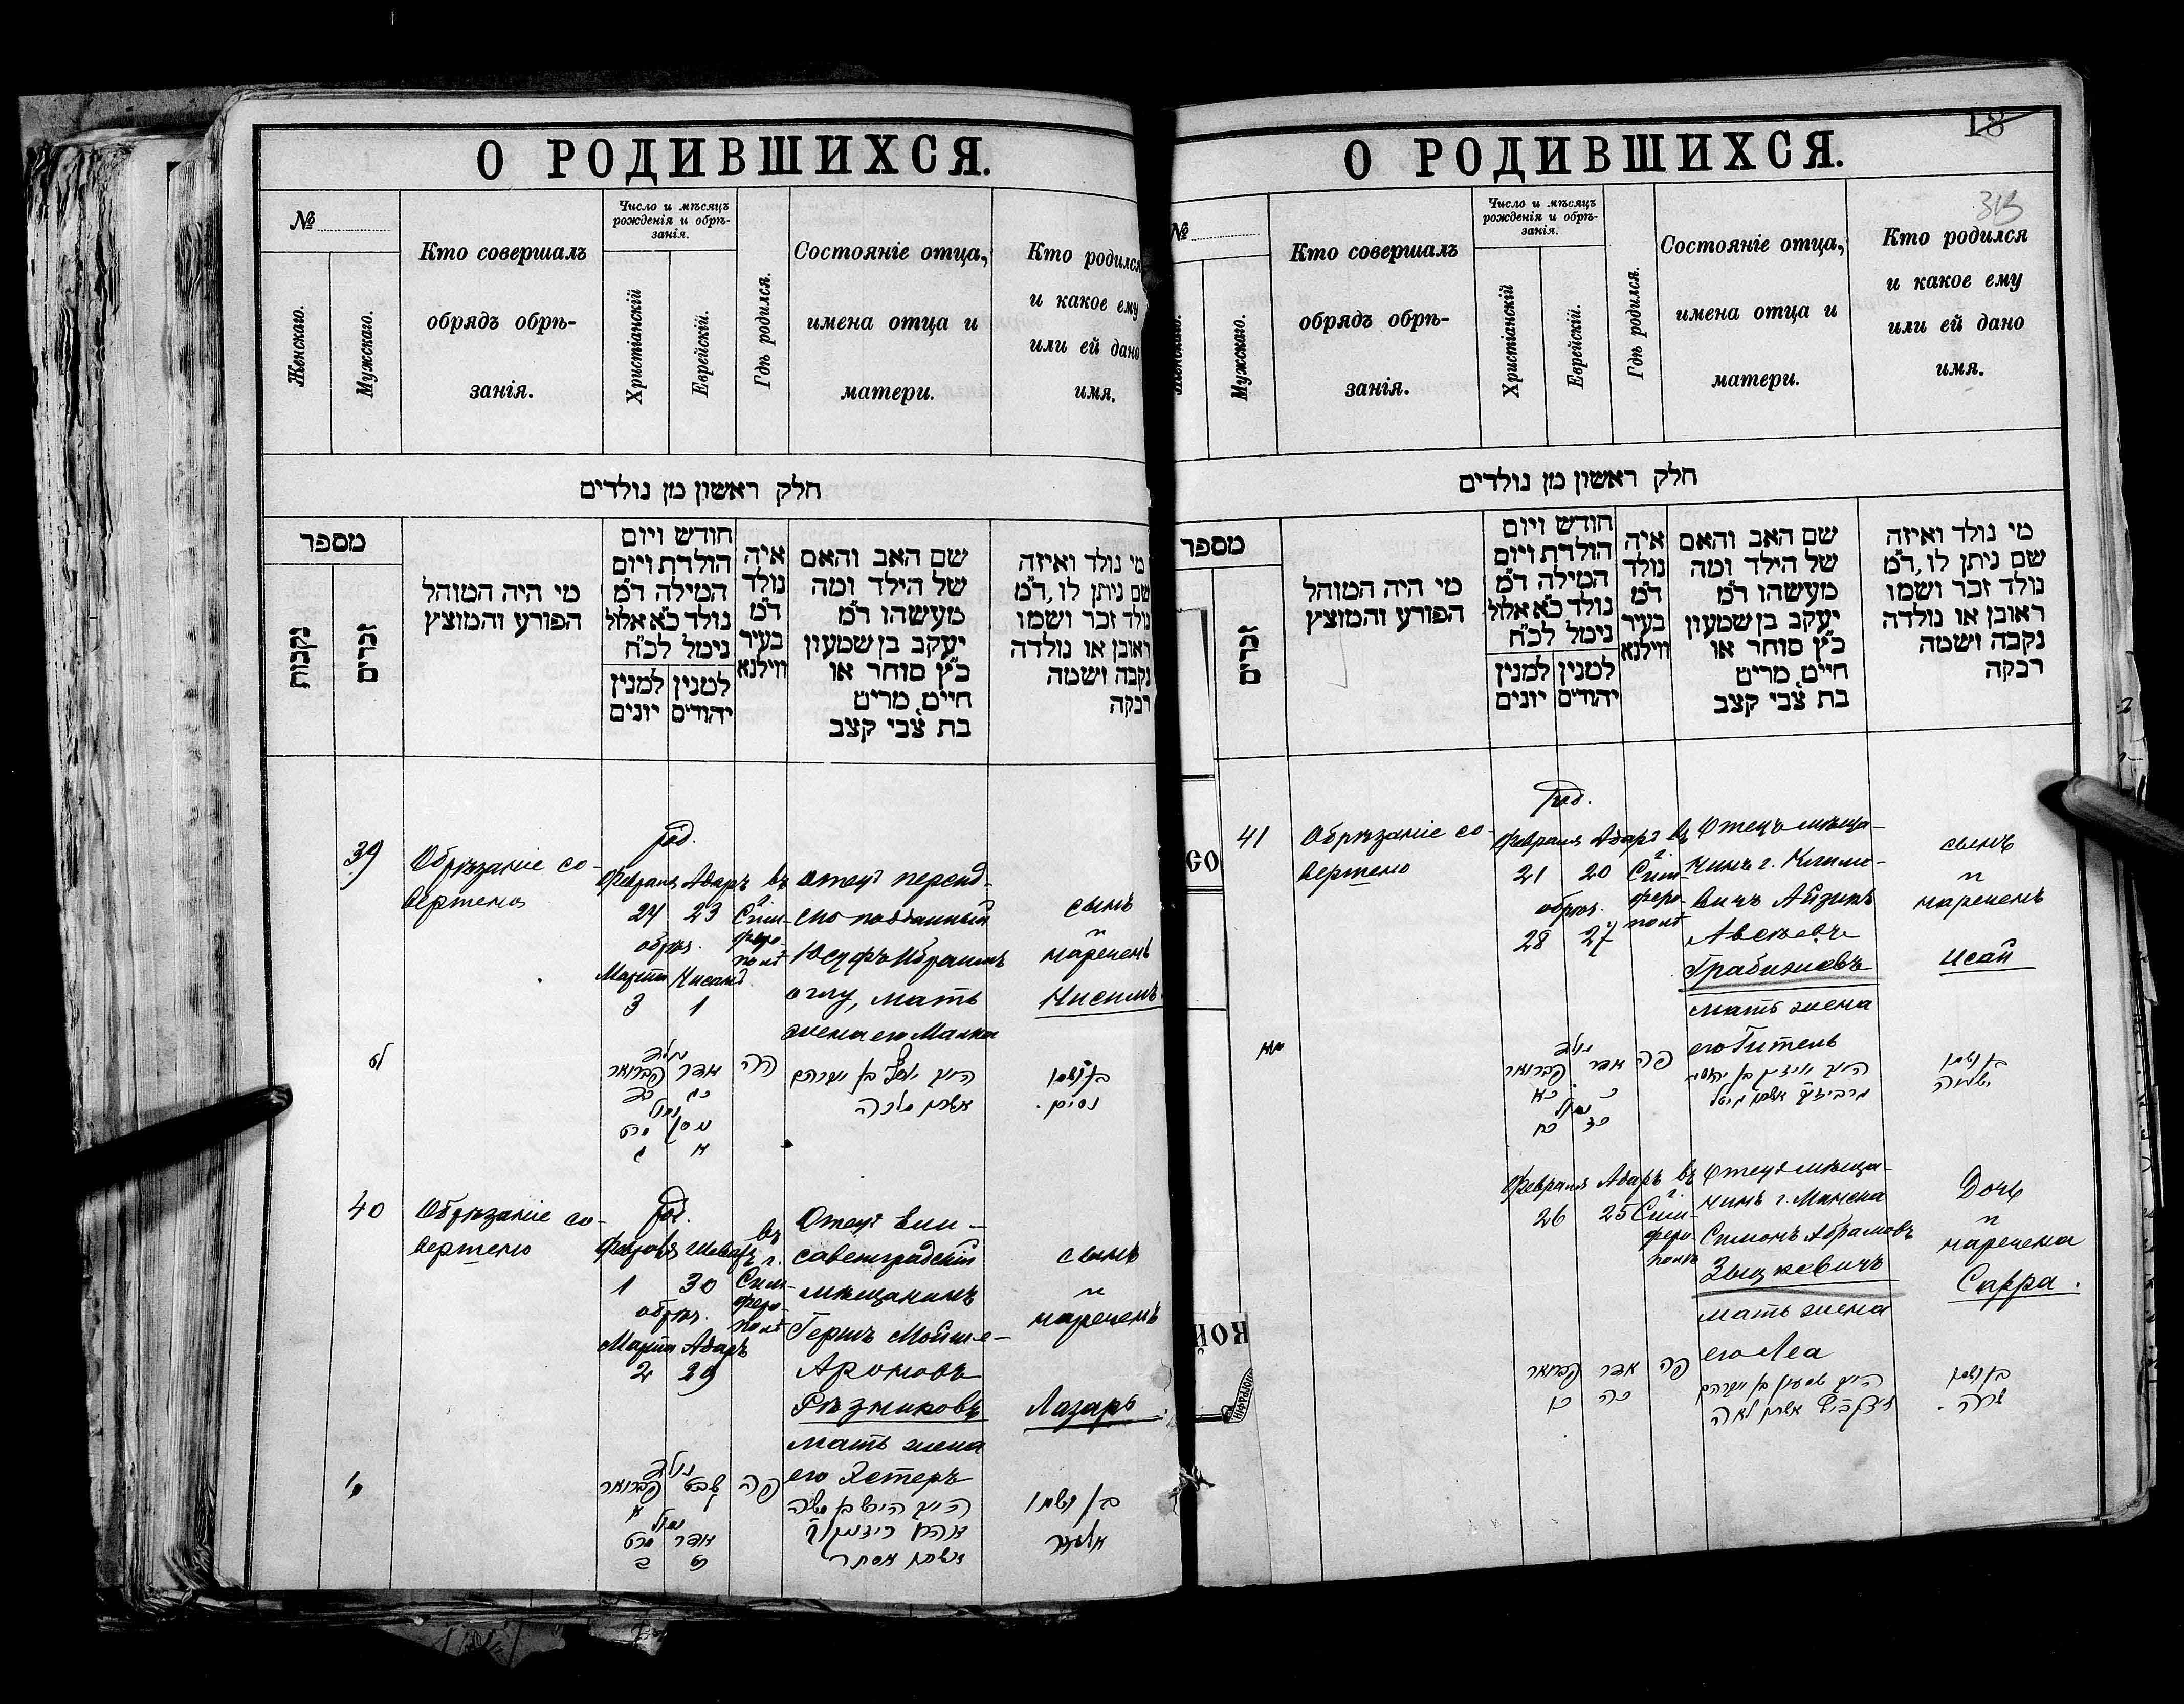 О РОДИВШИХСЯ.
№
Женскаго.
Мужскаго.
Кто совершалъ
обрядъ обрѣ-
занія.
Число и мѣсяцъ
рожденія и обрѣ-
занія.
Христіанскій
Еврейскій.
Гдѣ родился.
Состояніе отца,
имена отца и
матери.
Кто родился
и какое ему
или ей дано
имя.
חלק ראשון מן נולדים
מספר
נקבות
זכרים
מי היה המוהל
הפורע והמוצץ
חודש ויום
הולדת ויום
המילה ד"מ
נולד כ"א אלול
נימל לכ"ח
למנין יונים
למנין יהודים
איה
נולד
ד"מ
בעיר
ווילנא
שם האב והאם
של הילד ומה
מעשהו ד"מ
יעקב בן שמעון
כ"ץ סוחר או
חיים, מרים
בת צבי קצב
מי נולד ואיזה
שם ניתן לו, ד"מ
נולד זכר ושמו
ראובן או נולדה
נקבה ושמה
רבקה
39
Обрѣзаніе со-
вершено
род.
Февраля Адаръ
24 23
обрѣз.
Марта Нисанъ
3 1
въ
г.
Сим-
феро-
полѣ
отецъ персид-
ско подданный
Юсуфъ Ибраимъ
оглу, мать
жена его Малка
сынъ
и
нареченъ
Нисимъ
לט
נולד
פברואר אדר
כד כג
נמול
מרט ניסן
ג א
פה
ה' יוסף בן אברהם
אשתו מלכה
בן ושמו
נסים.
40
Обрѣзаніе со-
вершено
род.
Февраля Шеватъ
1 30
обрѣз.
Марта Адаръ
2 29
въ
г.
Сим-
феро-
полѣ
Отецъ Ели-
саветградскій
мѣщанинъ
Гершъ Мойше-
Ароновъ
Рѣзниковъ
мать жена
его Эстеръ
сынъ
и
нареченъ
Лазарь
מ
נולד
פברואר שבט
א ל
נמול
מרט אדר
ב כט
פה
אשתו אסתר
בן ושמו
אלעזר
18
313
О РОДИВШИХСЯ.
№
Женскаго.
Мужскаго.
Кто совершалъ
обрядъ обрѣ-
занія.
Число и мѣсяцъ
рожденія и обрѣ-
занія.
Христіанскій
Еврейскій.
Гдѣ родился.
Состояніе отца,
имена отца и
матери.
Кто родился
и какое ему
или ей дано
имя.
חלק ראשון מן נולדים
מספר
זכרים
מי היה המוהל
הפורע והמוצץ
חודש ויום
הולדת ויום
המילה ד"מ
נולד כ"א אלול
נימל לכ"ח
למנין יונים
למנין יהודים
איה
נולד
ד"מ
בעיר
ווילנא
שם האב והאם
של הילד ומה
מעשהו ד"מ
יעקב בן שמעון
כ"ץ סוחר או
חיים, מרים
בת צבי קצב
מי נולד ואיזה
שם ניתן לו, ד"מ
נולד זכר ושמו
ראובן או נולדה
נקבה ושמה
רבקה
41
Обрѣзаніе со-
вершено
род.
Февраля Адаръ
21 20
обрѣз.
28 27
въ
г.
Сим-
феро-
полѣ
Отецъ мѣща-
нинъ г. Климо-
вичъ Айзикъ
мать жена
его Гитель
сынъ
и
нареченъ
Исай
מא
נולד
פברואר אדר
כא כ
נמול
כח כז
פה
בן ושמו
ישעיה
Февраля Адаръ
26 25
въ
г.
Сим-
феро-
полѣ
Отецъ мѣща-
нинъ г. Минска
Симонъ Абрамовъ
Зыцкевичъ
мать жена
его Леа
Дочь
и
наречена
Сарра.
פברואר אדר
כו כה
פה
שרה.
СО
КОЙ